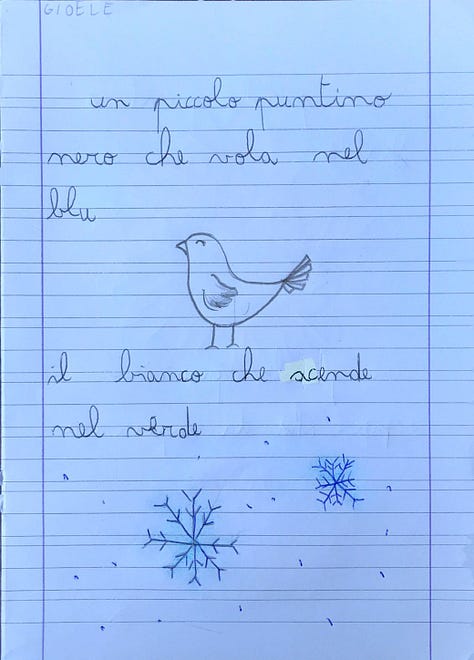 GIOELE
un piccolo puntino
nero che vola nel
blu
il bianco che scende
nel verde